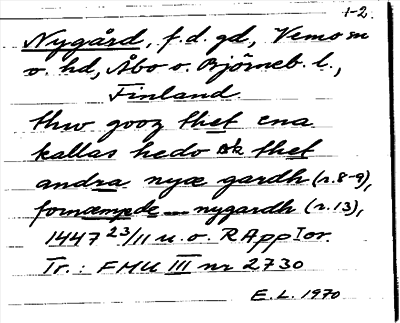 1-2.
Nygård, f.d. gd, Vemo sn
o. hd, Åbo o. Björneb. l.,
Finland.
thw gooz thet ena
kallas hedo ok thet
andra nyæ gardh (r.8-9),
fornæmpde — nygardh (r.13),
1447 23/11 u.o. RApp Tor.
Tr.: FMU III nr 2730
E.L. 1970